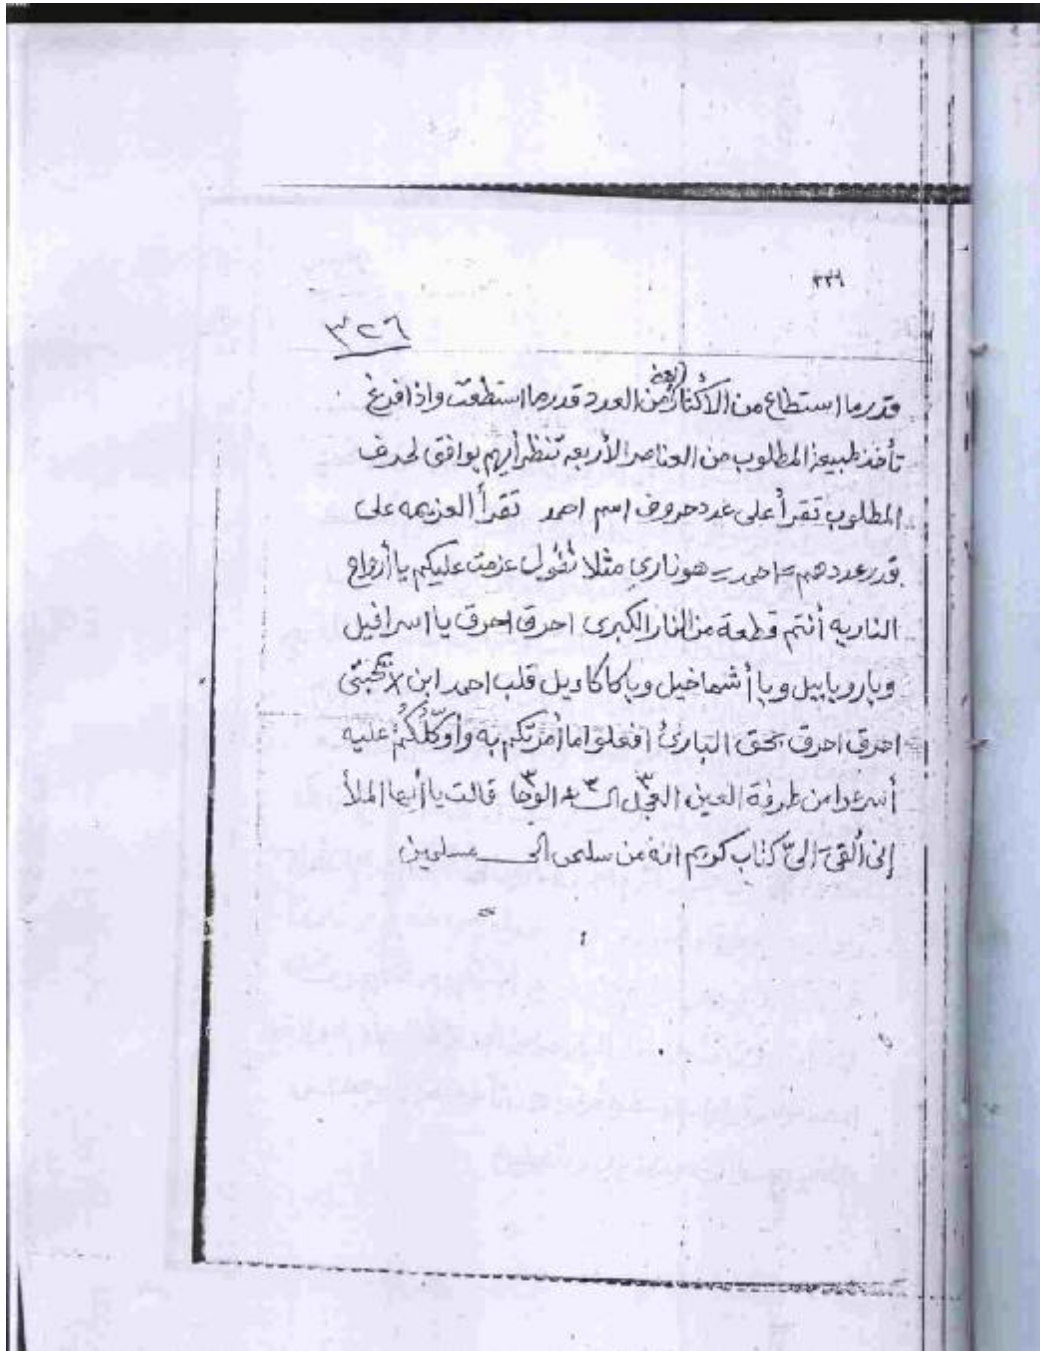 ٣٢٦
٣٢٦
قدر ما استطاع من الأكثار من العدد قدر ما استطعت واذا فرغ
تأخذ طبيعة المطلوب من العناصر الأربعه تنظر أيهم يوافق لحرف
المطلوب تقرأ على عدد حروف اسم احمد تقرأ العزيمه على
قدر عددهم احمد هو ناري مثلا تقول عزمت عليكم يا أرواح
الناريه أنتم قطعة من النار الكبرى احرق احرق يا اسرافيل
ويا روياييل ويا أشماخيل ويا كاكاءيل قلب احمد ابن
احرق احرق بحق البارئ افعلوا ما أمرتكم به وأوكلكم عليه
أسرعوا من طرفة العين العجل ٣ ٣ الوحا ٣ قالت يا أيها الملأ
إنى ألقي الىّ كتاب كريم انه من سليمن الى مسلمين